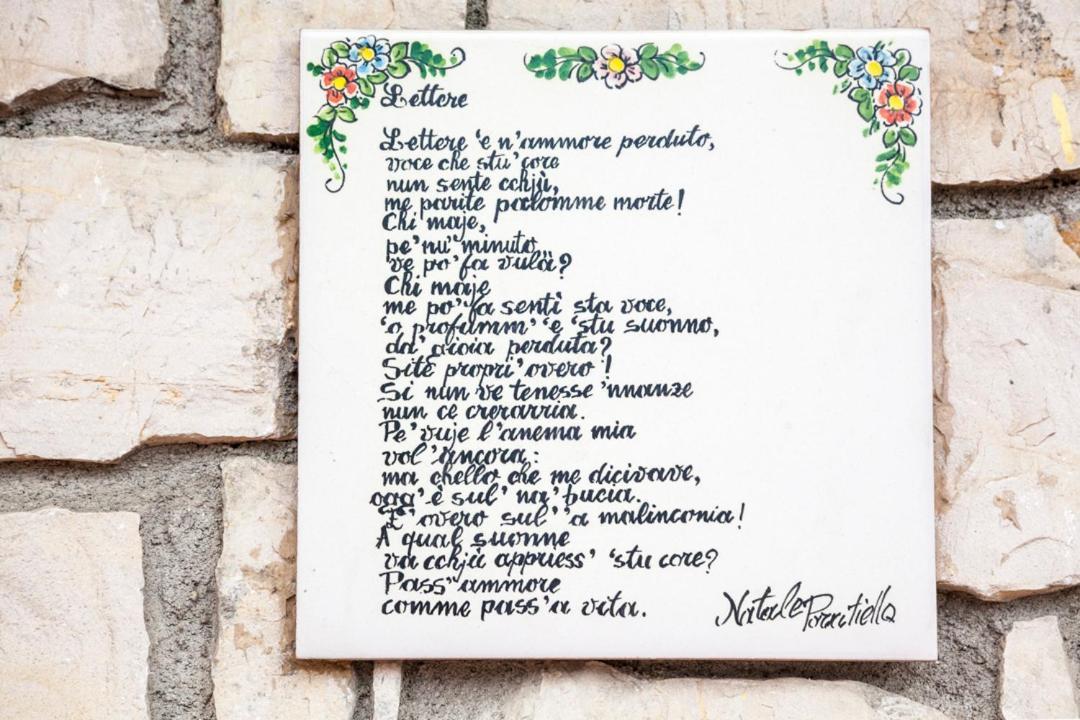 Lettere
Lettere 'e n'ammore perduto,
voce che stu' core
nun sente cchjù,
me parite palomme morte!
Chi maje,
pe' nu' minuto
ve po' fa vulà?
Chi maje
me po' fa sentì sta voce,
'o profumm' 'e 'stu suonno,
da' gioia perduta?
Site propri' overo!
Si nun ve tenesse 'nnanze
nun ce crerarria.
Pe' vuje l'anema mia
vol' ancora:
ma chello che me dicivave,
ogg' è sul' na' bucia.
E' overo sul' 'a malinconia!
A qual suonne
va cchjù appriess' 'stu core?
Pass' 'ammore
comme pass' a vita.
Natale